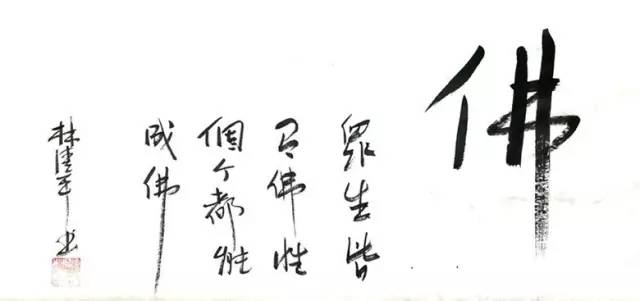 佛
眾生皆
有佛性
個个都能
成佛
林清 书